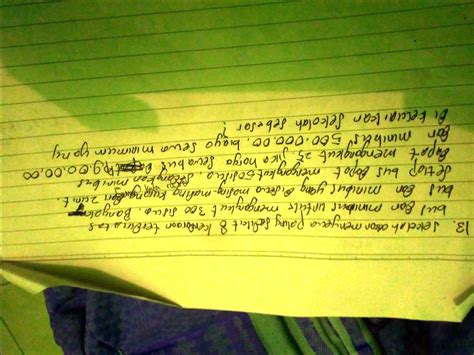 13. sekolah akan menyewa paling sedikit 8 kendaraan terdiri atas
bus dan minibus untuk mengangkut 300 siswa Banyaknya
bus dan minibus yang di sewa masing masing
setiap bus Dapat mengangkut siswa sedangkan minibus
Dapat mengangkut 25 jika harga sewa bus Rp. 900.00.00
Dan minibus 500.000.00 biaya sewa minimum yang
Di keluarkan sekolah sebesar ?